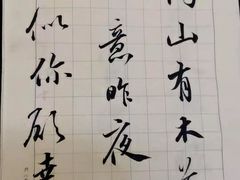 山有木
意昨夜
似你顾